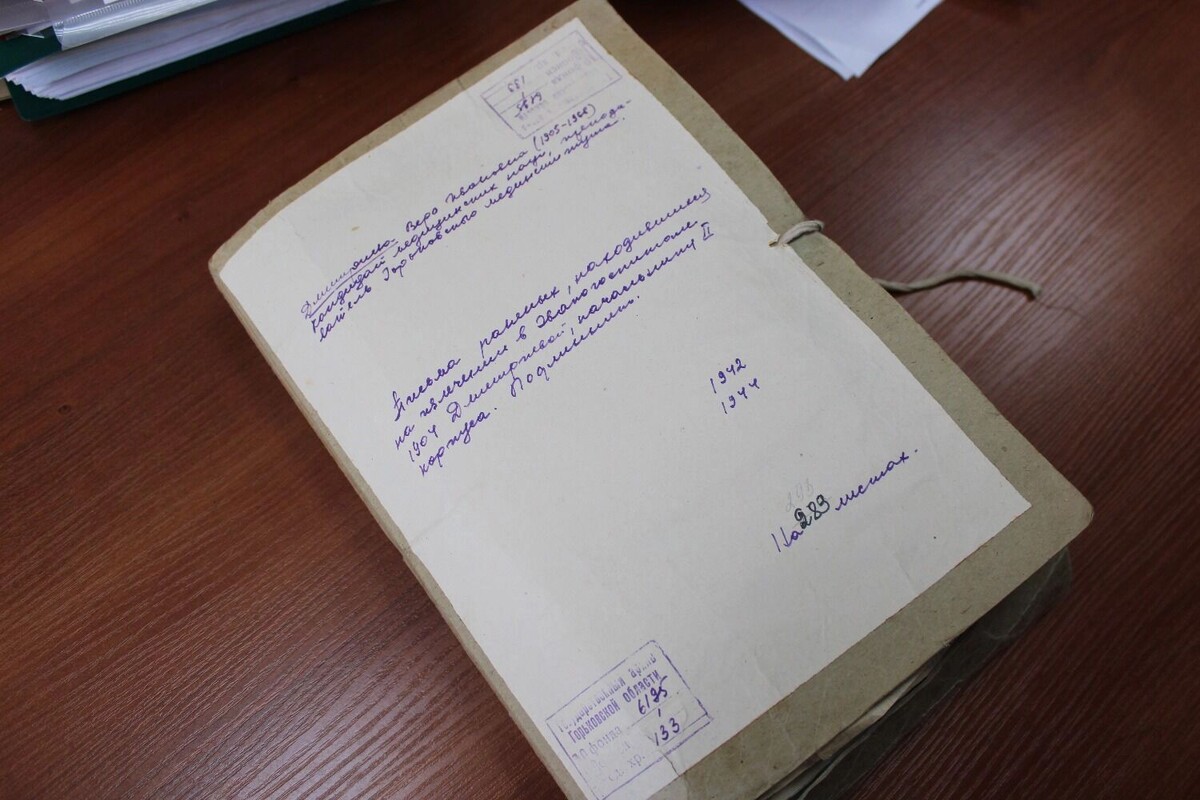 6195
133
Дмитриева Вера Ивановна (1905-1968)
кандидат медицинских наук, препода-
ватель Горьковского мединститута.
Письма раненых, находившихся
на излечении в Эвакогоспитале
1904 Дмитриевой, начальнику II
корпуса. Подлинники.
1942
1944
293
На 283 листах.
Государственный архив
Горьковской области
фонда 6195
1
Ед. хр. 133